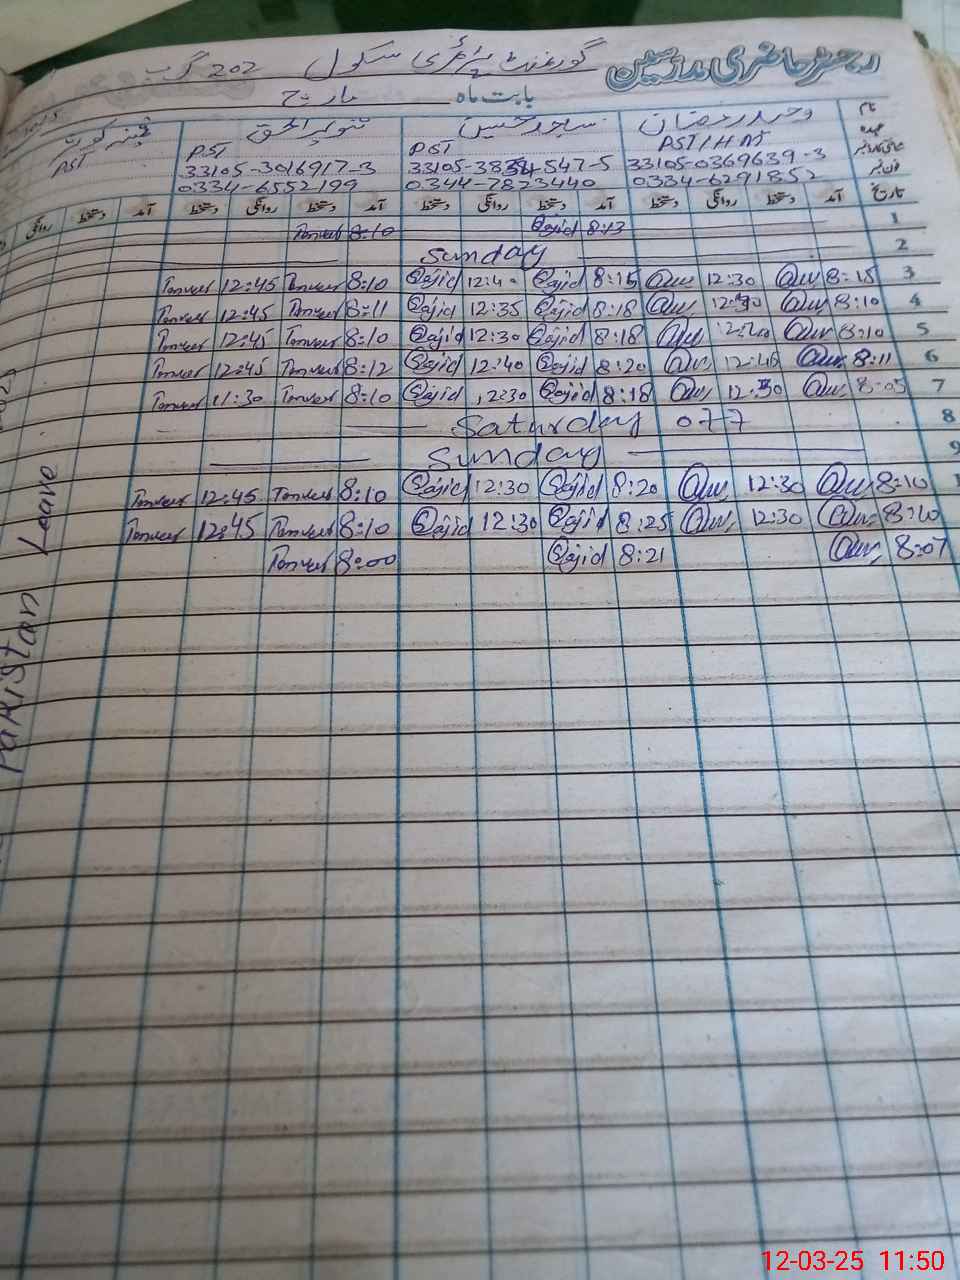 رجسٹر حاضری مدرسین گورنمنٹ پرائمری سکول 202 گ ب
بابت ماہ مارچ
نام وحید رمضان ساجد حسین تنویر الحق
عہدہ PST/HM PST PST PST
33105-0369639-3 33105-3016917-3
فون نمبر 0334-6291852 0344-7823440 0334-6552199
تاریخ آمد دستخط روانگی دستخط آمد دستخط روانگی دستخط آمد دستخط روانگی دستخط آمد دستخط روانگی
1 8:13 Sajid 8:10 Tanveer
2 Sunday
3 8:15 12:30 8:15 Sajid 12:40 Sajid 8:10 Tanveer 12:45 Tanveer
4 8:10 8:18 Sajid 12:35 Sajid 8:11 Tanveer 12:45 Tanveer
5 8:10 8:18 Sajid 12:30 Sajid 8:10 Tanveer 12:45 Tanveer
6 8:11 12:40 8:20 Sajid 12:40 Sajid 8:12 Tanveer 12:45 Tanveer
7 8:05 12:30 8:18 Sajid 12:30 Sajid 8:10 Tanveer 11:30 Tanveer
8 Saturday off
9 Sunday
8:10 12:30 8:20 Sajid 12:30 Sajid 8:10 Tanveer 12:45 Tanveer
8:10 12:30 8:25 Sajid 12:30 Sajid 8:10 Tanveer 12:45 Tanveer
8:07 8:21 Sajid 8:00 Tanveer
Pakistan Leave
12-03-25 11:50